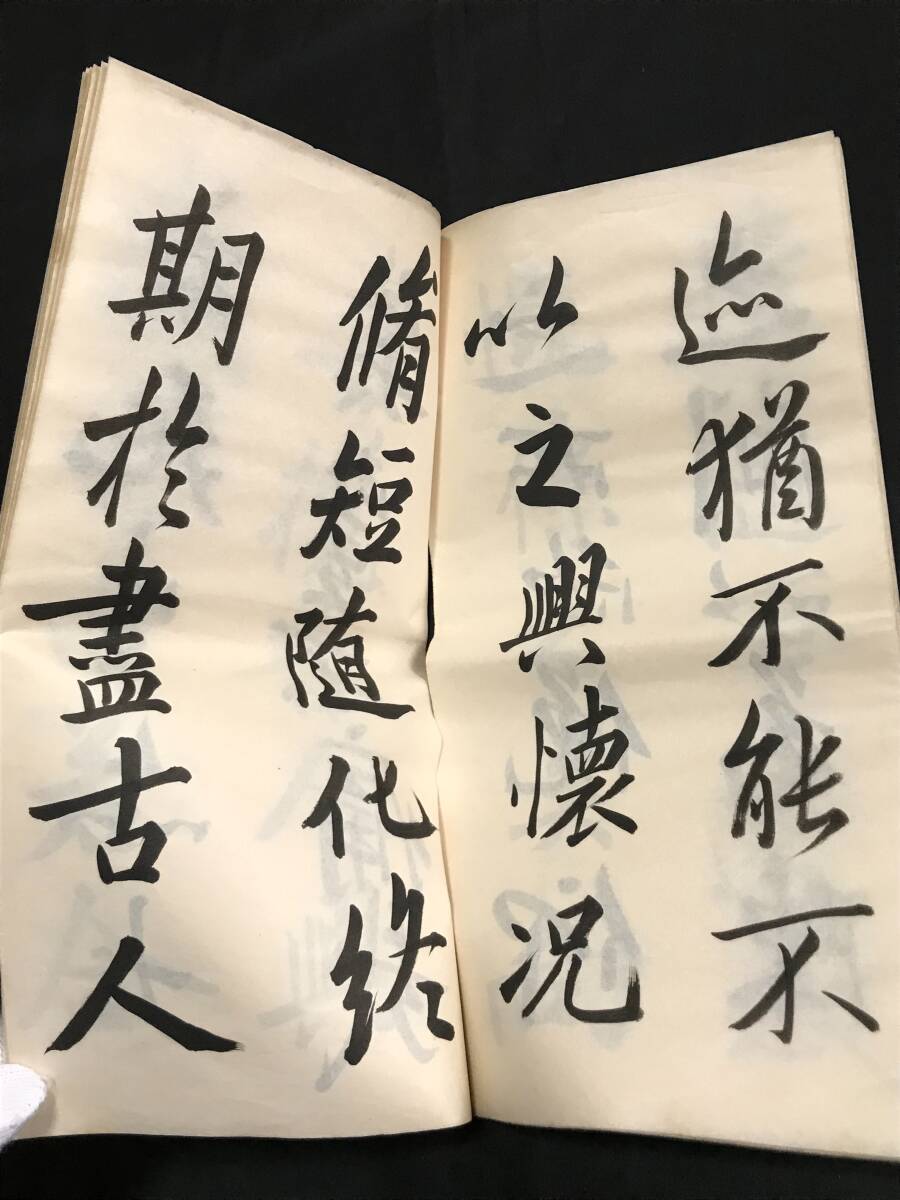 迹猶不能不
以之興懷况
脩短随化終
期於盡古人